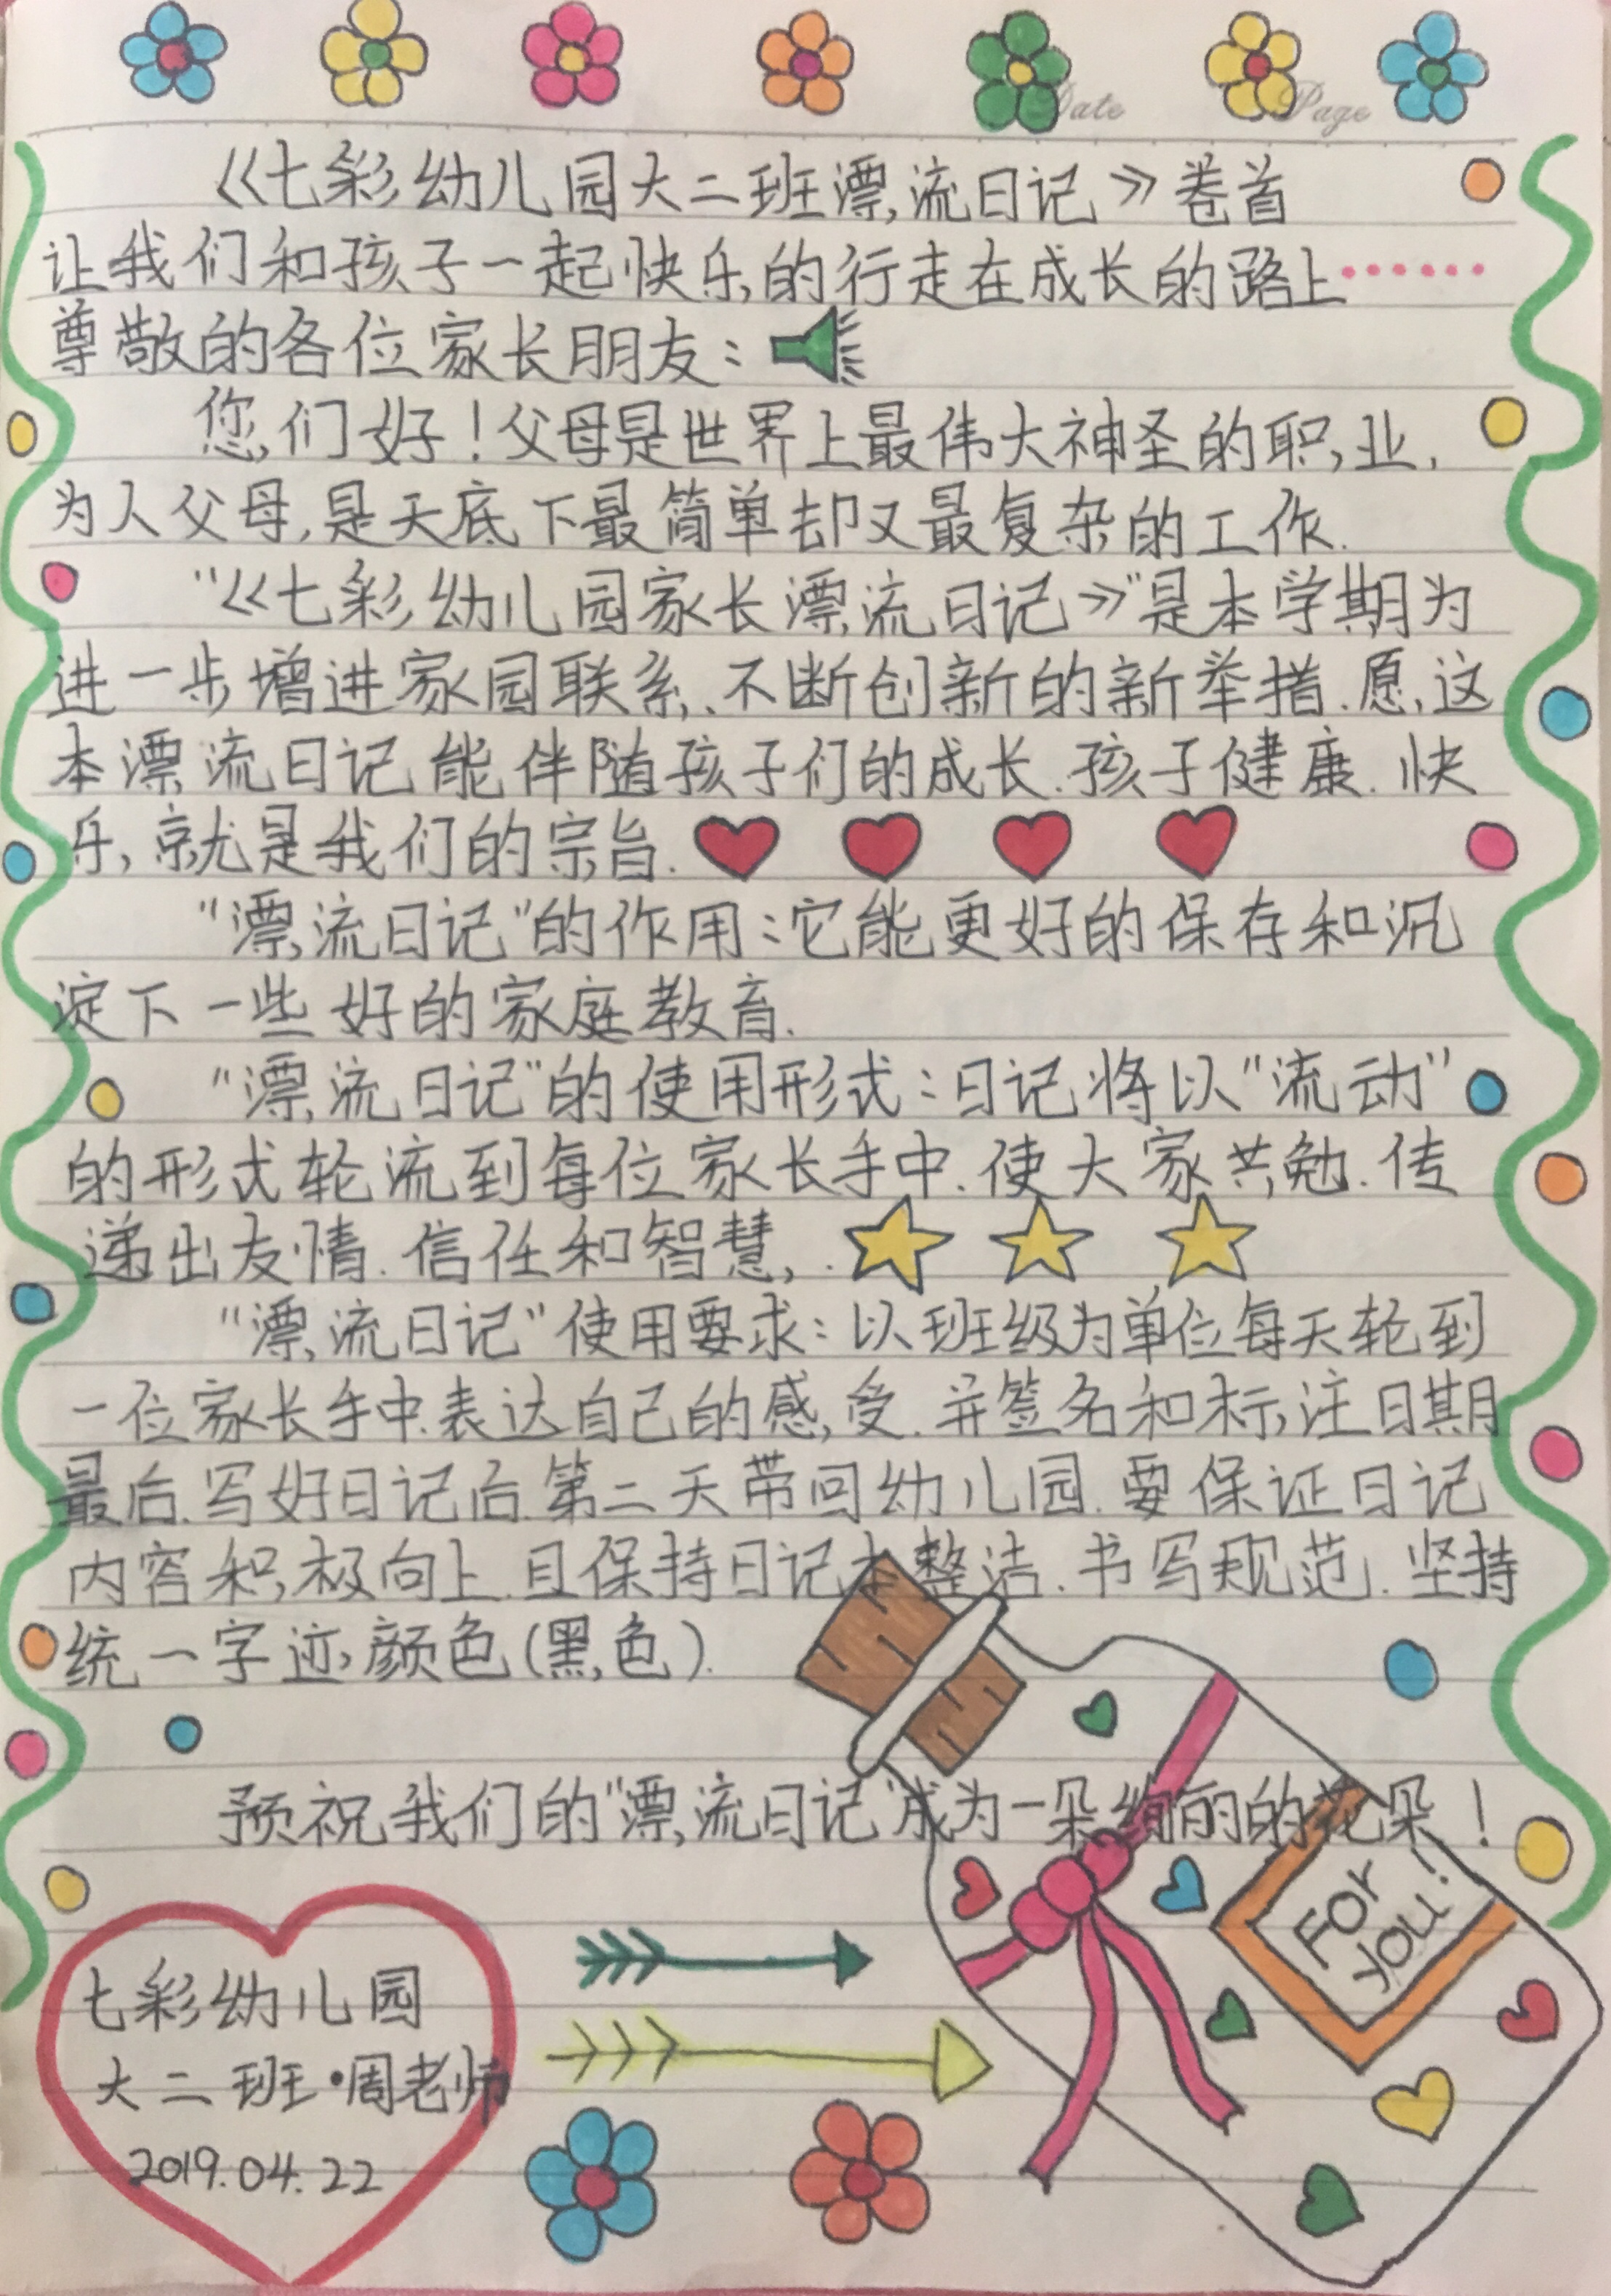 Date Page
《七彩幼儿园大二班漂流日记》卷首
让我们和孩子一起快乐的行走在成长的路上······
尊敬的各位家长朋友:
您们好!父母是世界上最伟大神圣的职业,
为人父母,是天底下最简单却又最复杂的工作.
"《七彩幼儿园家长漂流日记》"是本学期为
进一步增进家园联系、不断创新的新举措.愿这
本漂流日记能伴随孩子们的成长.孩子健康.快
乐,就是我们的宗旨.
"漂流日记"的作用:它能更好的保存和沉
淀下一些好的家庭教育.
"漂流日记"的使用形式:日记将以"流动"
的形式轮流到每位家长手中.使大家共勉.传
递出友情.信任和智慧,.
"漂流日记"使用要求:以班级为单位每天轮到
一位家长手中.表达自己的感受.并签名和标注日期
最后.写好日记后.第二天带回幼儿园.要保证日记
内容积极向上.且保持日记本整洁.书写规范.坚持
统一字迹,颜色(黑色).
预祝我们的"漂流日记"成为一朵绚丽的的花朵!
For
you!
七彩幼儿园
大二班·周老师
2019.04.22